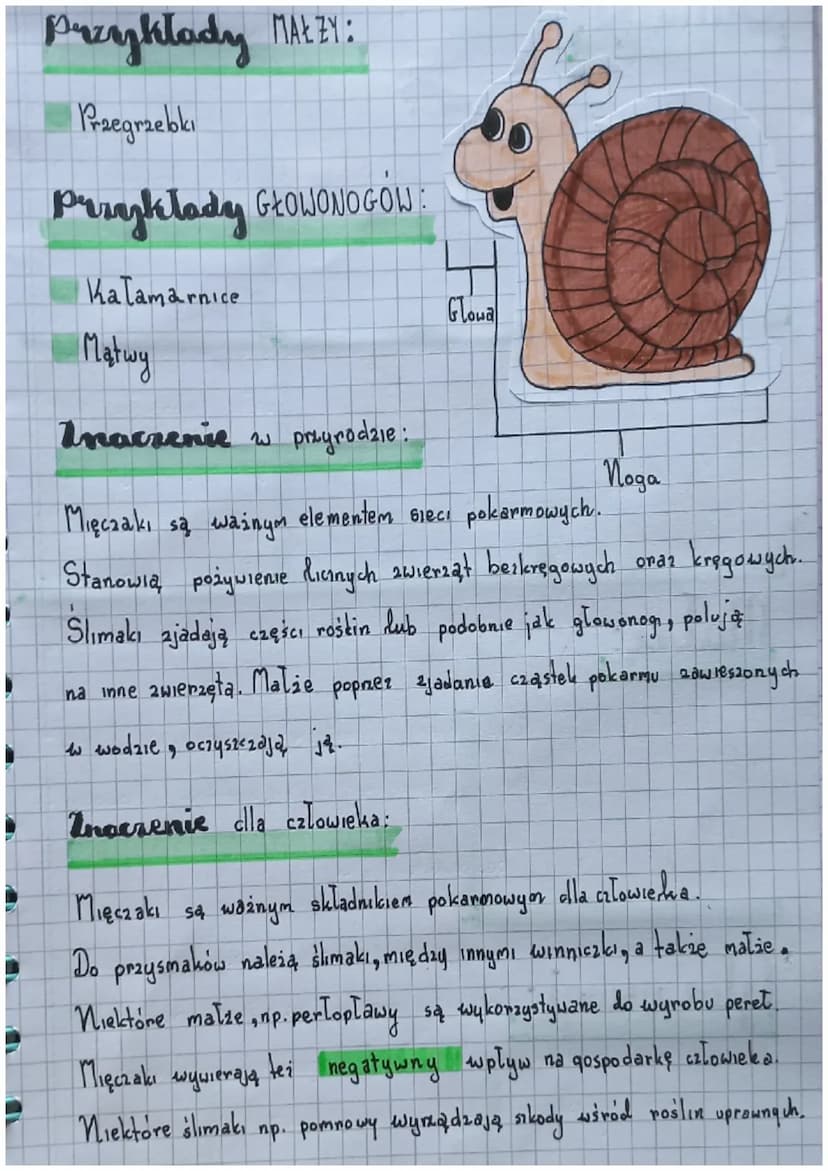 Przykłady MAŁŻY:
Przegrzebki
Przykłady GŁOWONOGÓW:
Kałamarnice
Głowa
Mątwy
Znaczenie w przyrodzie:
Noga
Mięczaki są ważnym elementem sieci pokarmowych.
Stanowią pożywienie licznych zwierząt bezkręgowych oraz kręgowych.
Ślimaki zjadają części roślin lub podobnie jak głowonogi, polują
na inne zwierzęta. Małże poprzez zjadania cząstek pokarmu zawieszonych
w wodzie, oczyszczają ją.
Znaczenie dla człowieka:
Mięczaki są ważnym składnikiem pokarmowym dla człowieka.
Do przysmaków należą ślimaki, między innymi winniczki, a także małże.
Niektóre małże, np. perłopławy są wykorzystywane do wyrobu pereł.
Mięczaki wywierają też negatywny wpływ na gospodarkę człowieka.
Niektóre ślimaki np. pomrowy wyrządzają szkody wśród roślin uprawnych.